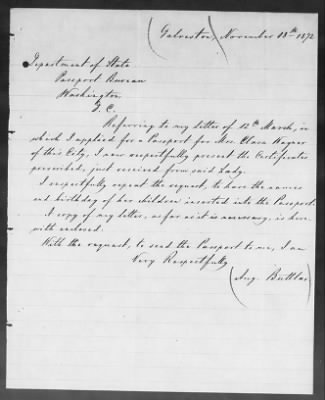 (Galveston,) November 18th 1872
Department of State
Passport Bureau
Washington
D. C.
Referring to my letter of 12th March, in
which I applied for a Passport for Mrs. Clara
of this City, I now respectfully present the Certificates
prescribed, just received from said Lady.
I respectfully repeat the request, to have the names
and birthday of her children inserted into the Passport.
A copy of my letter, as far as it is necessary, is here-
with enclosed.
With the request, to send the Passport to me, I am
Very Respectfully
(Aug. Buttlar)